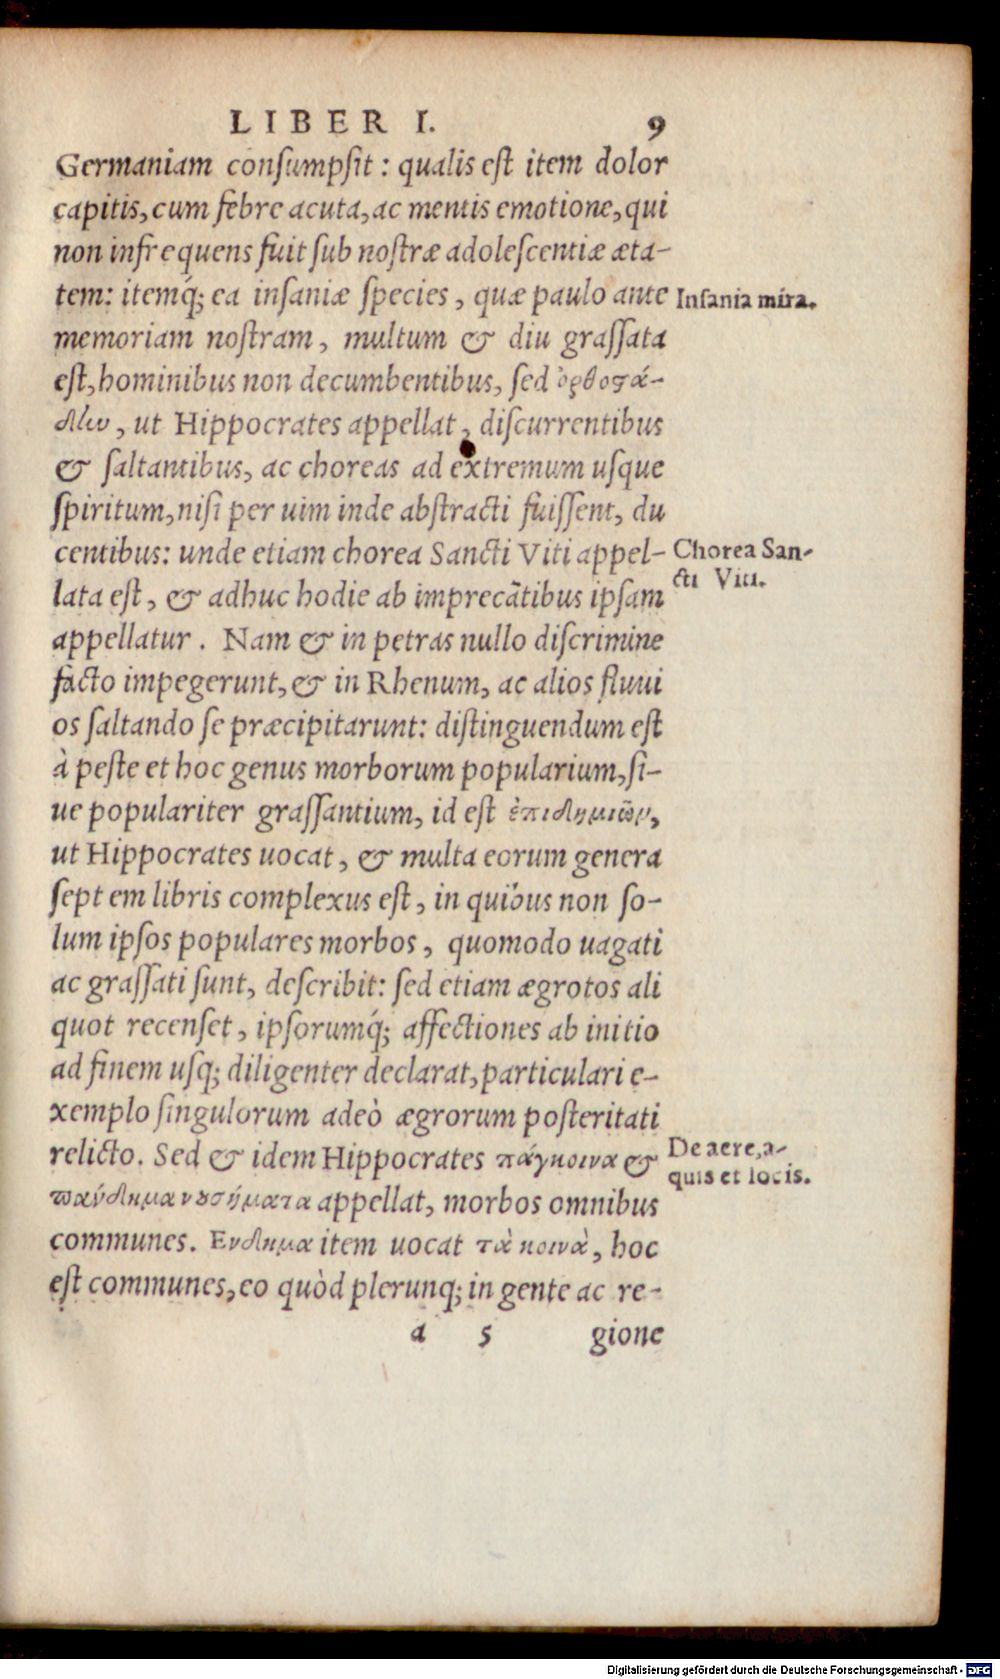 LIBER I. 9
Germaniam consumpsit: qualis est item dolor
capitis, cum febre acuta, ac mentis emotione, qui
non infrequens fuit sub nostræ adolescentiæ æta-
tem: itemq́; ea insaniæ species, quæ paulo ante
Insania mira.
memoriam nostram, multum & diu grassata
est, hominibus non decumbentibus, sed ὀρθοστά-
δην, ut Hippocrates appellat, discurrentibus
& saltantibus, ac choreas ad extremum usque
spiritum, nisi per uim inde abstracti fuissent, du
centibus: unde etiam chorea Sancti Viti appel-
Chorea San-
cti Viti.
lata est, & adhuc hodie ab imprecãtibus ipsam
appellatur. Nam & in petras nullo discrimine
facto impegerunt, & in Rhenum, ac alios fluui
os saltando se præcipitarunt: distinguendum est
à peste et hoc genus morborum popularium, si-
ue populariter grassantium, id est ἐπιδημιῶν,
ut Hippocrates uocat, & multa eorum genera
septem libris complexus est, in quibus non so-
lum ipsos populares morbos, quomodo uagati
ac grassati sunt, describit: sed etiam ægrotos ali
quot recenset, ipsorumq́; affectiones ab initio
ad finem usq; diligenter declarat, particulari e-
xemplo singulorum adeò ægrorum posteritati
relicto. Sed & idem Hippocrates πάγκοινα &
De aere, a-
quis et locis.
πάνδημα νουσήματα appellat, morbos omnibus
communes. Ενδημα item uocat τὰ κοινὰ, hoc
est communes, eo quòd plerunq; in gente ac re-
a 5 gione
Digitalisierung gefördert durch die Deutsche Forschungsgemeinschaft - DFG